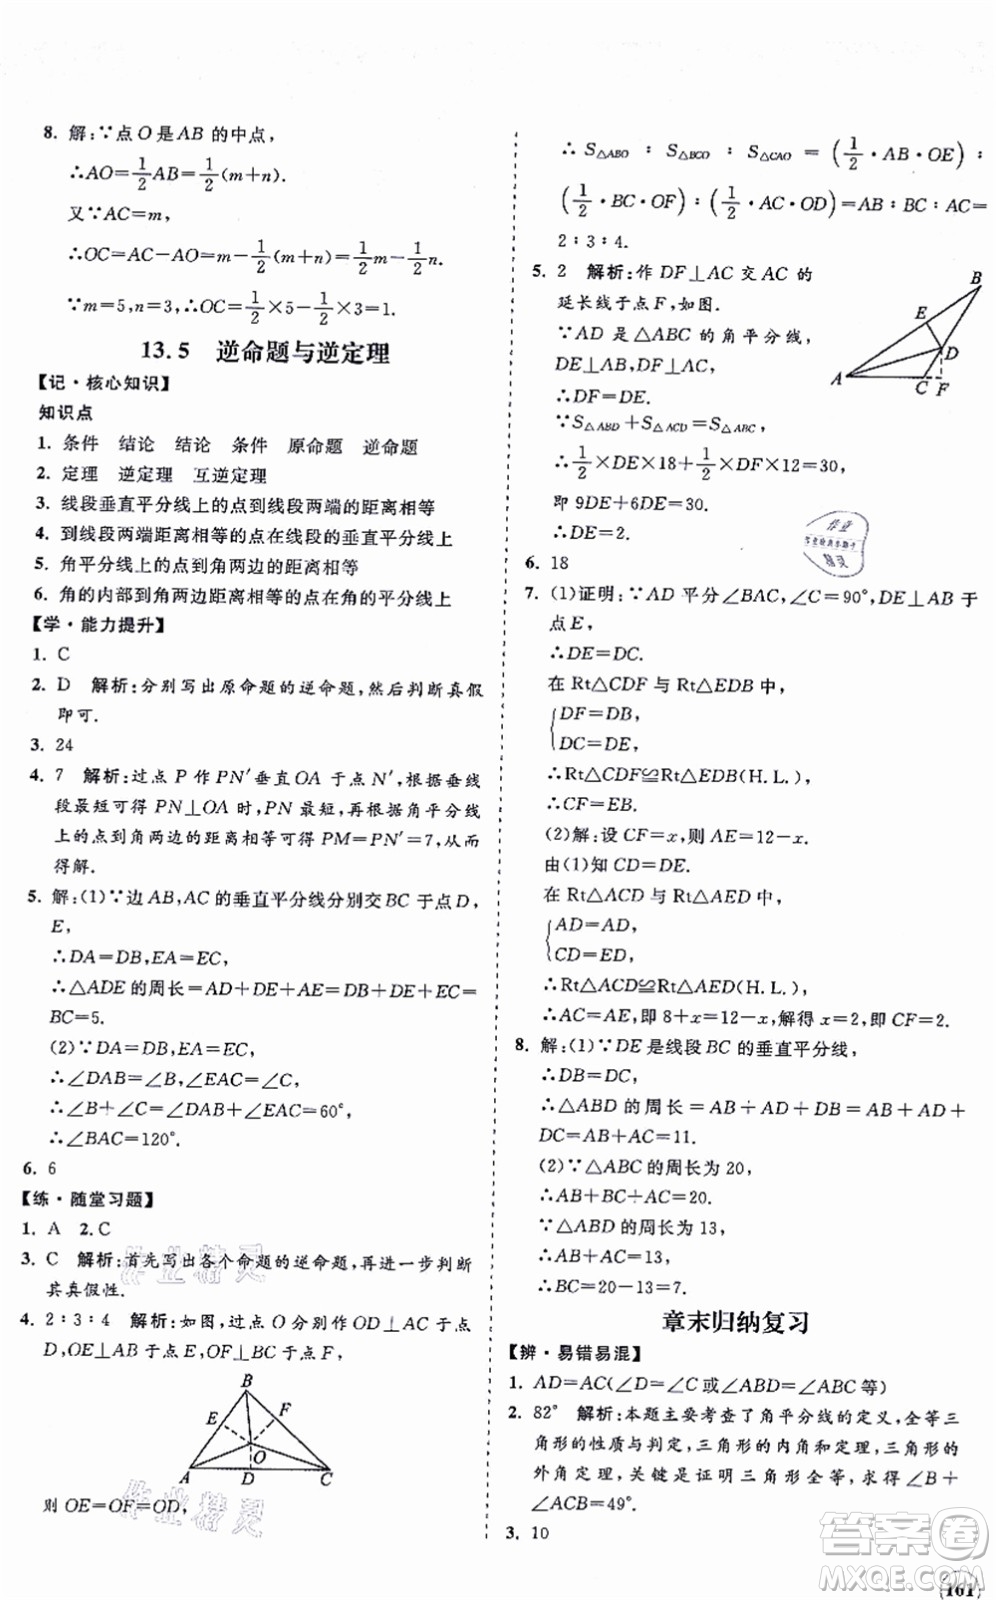 8. 解:∵点 O 是 AB 的中点,
∴AO=1/2AB=1/2(m+n).
又∵AC=m,
∴OC=AC-AO=m-1/2(m+n)=1/2m-1/2n.
∵m=5,n=3,∴OC=1/2×5-1/2×3=1.
13.5 逆命题与逆定理
【记·核心知识】
知识点
1. 条件 结论 结论 条件 原命题 逆命题
2. 定理 逆定理 互逆定理
3. 线段垂直平分线上的点到线段两端的距离相等
4. 到线段两端距离相等的点在线段的垂直平分线上
5. 角平分线上的点到角两边的距离相等
6. 角的内部到角两边距离相等的点在角的平分线上
【学·能力提升】
1. C
2. D 解析:分别写出原命题的逆命题,然后判断真假
即可.
3. 24
4. 7 解析:过点 P 作 PN′垂直 OA 于点 N′,根据垂线
段最短可得 PN⊥OA 时,PN 最短,再根据角平分线
上的点到角两边的距离相等可得 PM=PN′=7,从而
得解.
5. 解:(1)∵边 AB,AC 的垂直平分线分别交 BC 于点 D,
E,
∴DA=DB,EA=EC.
∴△ADE 的周长=AD+DE+AE=DB+DE+EC=
BC=5.
(2)∵DA=DB,EA=EC,
∴∠DAB=∠B,∠EAC=∠C.
∴∠B+∠C=∠DAB+∠EAC=60°.
∴∠BAC=120°.
6. 6
【练·随堂习题】
1. A 2. C
3. C 解析:首先写出各个命题的逆命题,再进一步判断
其真假性.
4. 2∶3∶4 解析:如图,过点 O 分别作 OD⊥AC 于点
D,OE⊥AB 于点 E,OF⊥BC 于点 F,
B
E F
O
A D C
则 OE=OF=OD,
∴ S△ABO ∶ S△BCO ∶ S△CAO = (1/2·AB·OE)∶
(1/2·BC·OF)∶(1/2·AC·OD)=AB∶BC∶AC=
2∶3∶4.
5. 2 解析:作 DF⊥AC 交 AC 的
延长线于点 F,如图.
∵AD 是△ABC 的角平分线,
DE⊥AB,
∴DF=DE.
∵S△ABD+S△ACD=S△ABC,
∴1/2×DE×18+1/2×DF×12=30,
即 9DE+6DE=30.
∴DE=2.
B
E
D
A C F
6. 18
7. (1)证明:∵AD 平分∠BAC,∠C=90°,DE⊥AB 于
点 E,
∴DE=DC.
在 Rt△CDF 与 Rt△EDB 中,
{DF=DB,
DC=DE,
∴Rt△CDF≌Rt△EDB(H.L.),
∴CF=EB.
(2)解:设 CF=x,则 AE=12-x.
由(1)知 CD=DE.
在 Rt△ACD 与 Rt△AED 中,
{AD=AD,
CD=ED,
∴Rt△ACD≌Rt△AED(H.L.),
∴AC=AE,即 8+x=12-x,解得 x=2,即 CF=2.
8. 解:(1)∵DE 是线段 BC 的垂直平分线,
∴DB=DC.
∴△ABD 的周长=AB+AD+DB=AB+AD+
DC=AB+AC=11.
(2)∵△ABC 的周长为 20,
∴AB+BC+AC=20.
∵△ABD 的周长为 13,
∴AB+AC=13,
∴BC=20-13=7.
章末归纳复习
【辨·易错易混】
1. AD=AC(∠D=∠C 或∠ABD=∠ABC 等)
2. 82° 解析:本题主要考查了角平分线的定义,全等三
角形的性质与判定,三角形的内角和定理,三角形的
外角定理,关键是证明三角形全等,求得∠B+
∠ACB=49°.
3. 10
(161)
答案圈
MXQE.COM
作业精灵
作业精灵